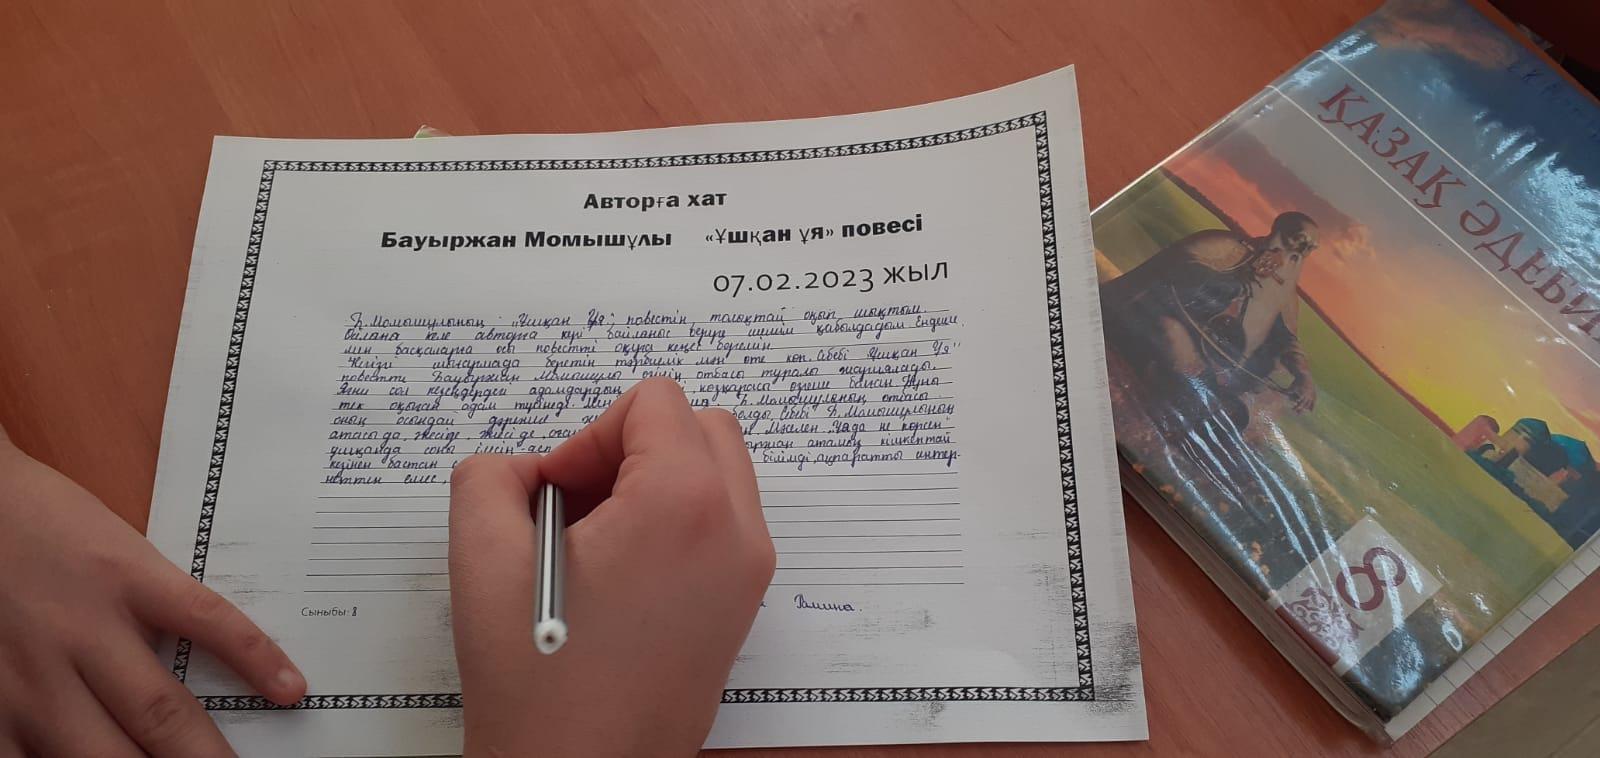 Авторға хат
Бауыржан Момышұлы «Ұшқан ұя» повесі
07.02.2023 жыл
Б.Момышұлының „Ұшқан Ұя" повестін толықтай оқып шықтым.
келе авторға кері байланыс беруге шешім қабылдадым. Ендеше
мен басқаларға осы повестті оқуға кеңес беремін.
шығармада беретін тәрбиелік мән өте көп. Себебі Ұшқан Ұя"
повестті Бауыржан Момышұлы өзінің отбасы туралы жариялады.
Яғни сол кезеңдердегі адамдардың көзқарасы өзгеше болған. Мұны
тек оқыған адам түсінеді. Б.Момышұлының отбасы
оның осындай дәреже болды. Себебі Б.Момышұлының
атасы да, әжесі де, әкесі де Мәселен „Ұяда не көрсең
ұшқанда соны ілесің" деп аталмыш кішкентай
кезінен бастап білімді, ақпаратты интер-
неттен емес,
Сыныбы: 8
ҚАЗАҚ ӘДЕБИ
8